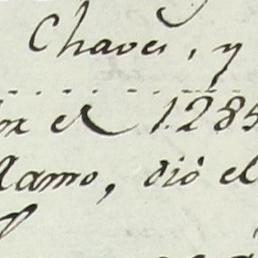 Chaves, y
el 1285
Ramo, dió el